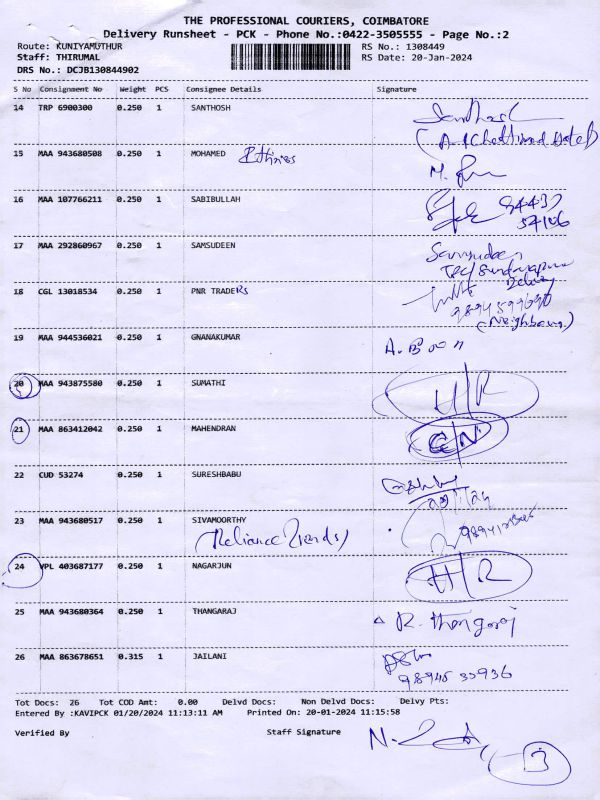 THE PROFESSIONAL COURIERS, COIMBATORE
Delivery Runsheet - PCK - Phone No.:0422-3505555 - Page No.:2
Route: KUNIYAMUTHUR RS No.: 1308449
Staff: THIRUMAL RS Date: 20-Jan-2024
DRS No.: DCJB130844902
S No Consignment No Weight PCS Consignee Details Signature
14 TRP 6900300 0.250 1 SANTHOSH
15 MAA 943680508 0.250 1 MOHAMED
16 MAA 107766211 0.250 1 SABIBULLAH 94437
54106
17 MAA 292860967 0.250 1 SAMSUDEEN
18 CGL 13018534 0.250 1 PNR TRADERS
(Neighbour)
19 MAA 944536021 0.250 1 GNANAKUMAR A. Boon
20 MAA 943875580 0.250 1 SUMATHI H/R
21 MAA 863412042 0.250 1 MAHENDRAN
22 CUD 53274 0.250 1 SURESHBABU
23 MAA 943680517 0.250 1 SIVAMOORTHY
(Reliance Trends)
24 VPL 403687177 0.250 1 NAGARJUN H/R
25 MAA 943680364 0.250 1 THANGARAJ R. Thangaraj
26 MAA 863678651 0.315 1 JAILANI
Tot Docs: 26 Tot COD Amt: 0.00 Delvd Docs: Non Delvd Docs: Delvy Pts:
Entered By :KAVIPCK 01/20/2024 11:13:11 AM Printed On: 20-01-2024 11:15:58
Verified By Staff Signature
3